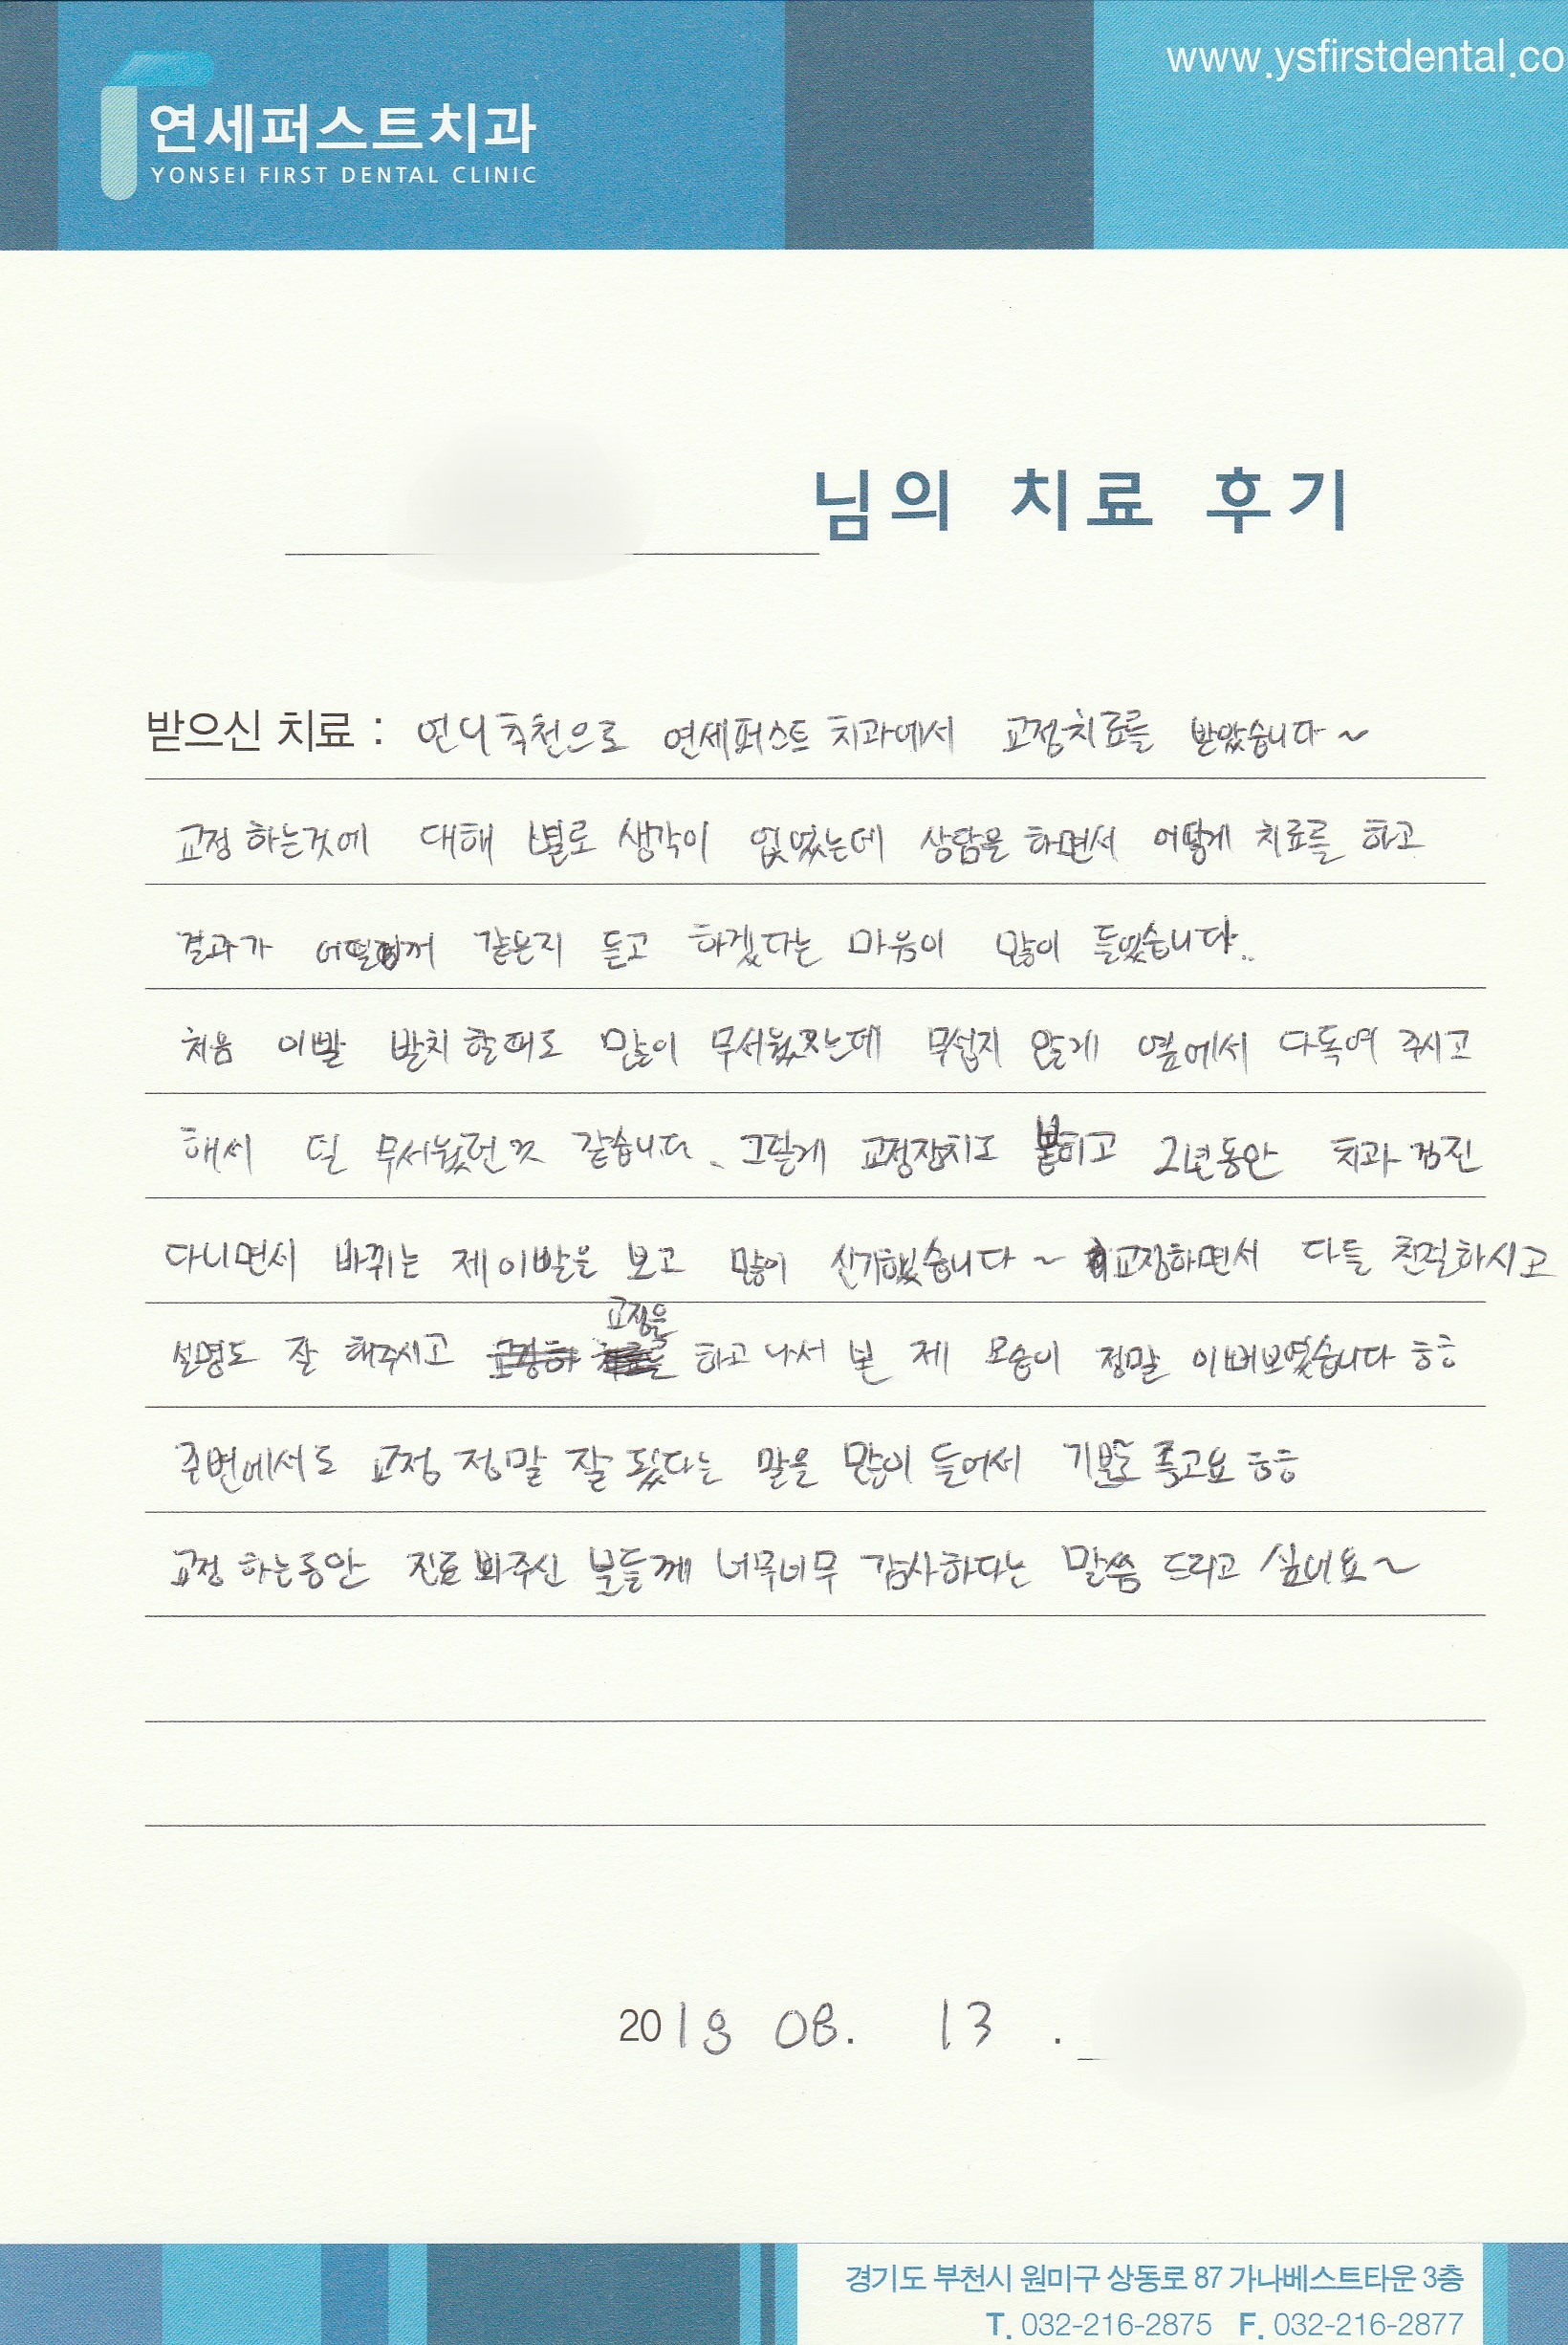 www.ysfirstdental.co
연세퍼스트치과
YONSEI FIRST DENTAL CLINIC
님의 치료 후기
받으신 치료 : 언니 추천으로 연세퍼스트 치과에서 교정치료를 받았습니다~
교정 하는것에 대해 별로 생각이 없었는데 상담을 하면서 어떻게 치료를 하고
결과가 어떨꺼 같은지 듣고 하겠다는 마음이 많이 들었습니다..
처음 이빨 발치 할때도 많이 무서웠었는데 무섭지 않게 옆에서 다독여 주시고
해서 덜 무서웠던것 같습니다. 그렇게 교정장치도 붙히고 2년동안 치과 검진
다니면서 바뀌는 제 이빨을 보고 많이 신기했습니다~ 교정하면서 다들 친절하시고
설명도 잘 해주시고 교정을 하고 나서 본 제 모습이 정말 이뻐보였습니다 ㅎㅎ
주변에서도 교정 정말 잘 됐다는 말을 많이 들어서 기분도 좋고요 ㅎㅎ
교정 하는동안 진료 봐주신 분들께 너무너무 감사하다는 말씀 드리고 싶어요~
2018 08. 13 .
경기도 부천시 원미구 상동로 87 가나베스트타운 3층
T. 032-216-2875 F. 032-216-2877